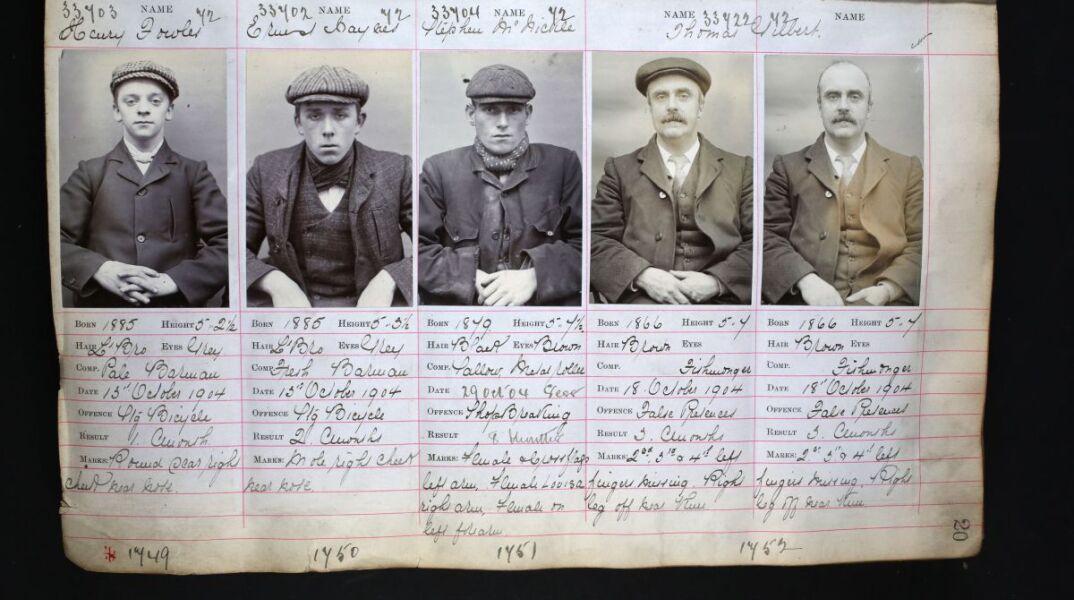 33703 NAME 72 33702 NAME 72 33704 NAME 72 NAME 33722 72 NAME
Henry Fowler Ernest Stephen Thomas Gilbert.
BORN 1885 HEIGHT 5-2½ BORN 1885 HEIGHT 5-3½ BORN 1879 HEIGHT 5-4½ BORN 1866 HEIGHT 5-4 BORN 1866 HEIGHT 5-4
HAIR L' Bro EYES Grey HAIR L' Bro EYES Grey HAIR Black EYES Brown HAIR Brown EYES HAIR Brown EYES
COMP. Pale Barman COMP. Fresh Barman COMP. Sallow COMP. Fishmonger COMP. Fishmonger
DATE 15th October 1904 DATE 15th October 1904 DATE 29 Oct 04 DATE 18 October 1904 DATE 18th October 1904
OFFENCE Stg Bicycle OFFENCE Stg Bicycle OFFENCE Shop Breaking OFFENCE False Pretences OFFENCE False Pretences
RESULT 1. Month RESULT 2. Months RESULT Months RESULT 3. Months RESULT 3. Months
MARKS: Round scar right MARKS: Mole right cheek MARKS: Female & MARKS: 2nd, 3rd & 4th left MARKS: 2nd 3rd & 4th left
cheek near nose. near nose. left arm, Female Louisa fingers missing. Right fingers missing. Right
right arm, Female on leg off near knee leg off near knee
left forearm.
* 1749 1750 1751 1752
20